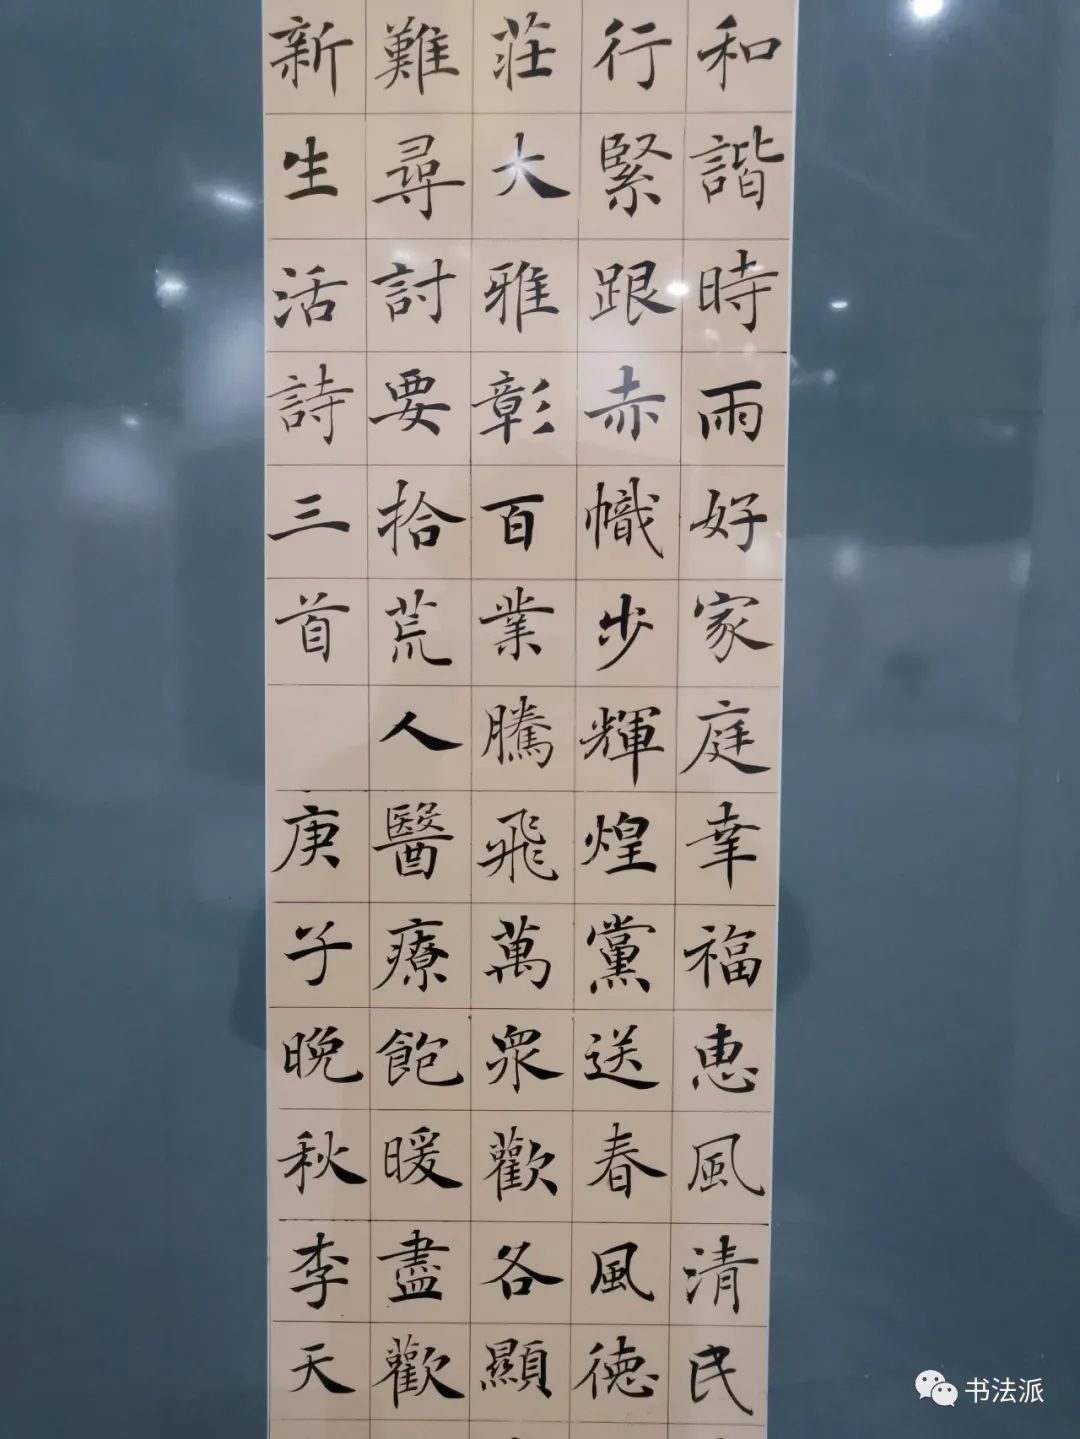 和諧時雨好家庭幸福惠風清民
行緊跟赤幟步輝煌黨送春風德
莊大雅彰百業騰飛萬眾歡各顯
難尋討要拾荒人醫療飽暖盡歡
新生活詩三首 庚子晚秋李天
书法派